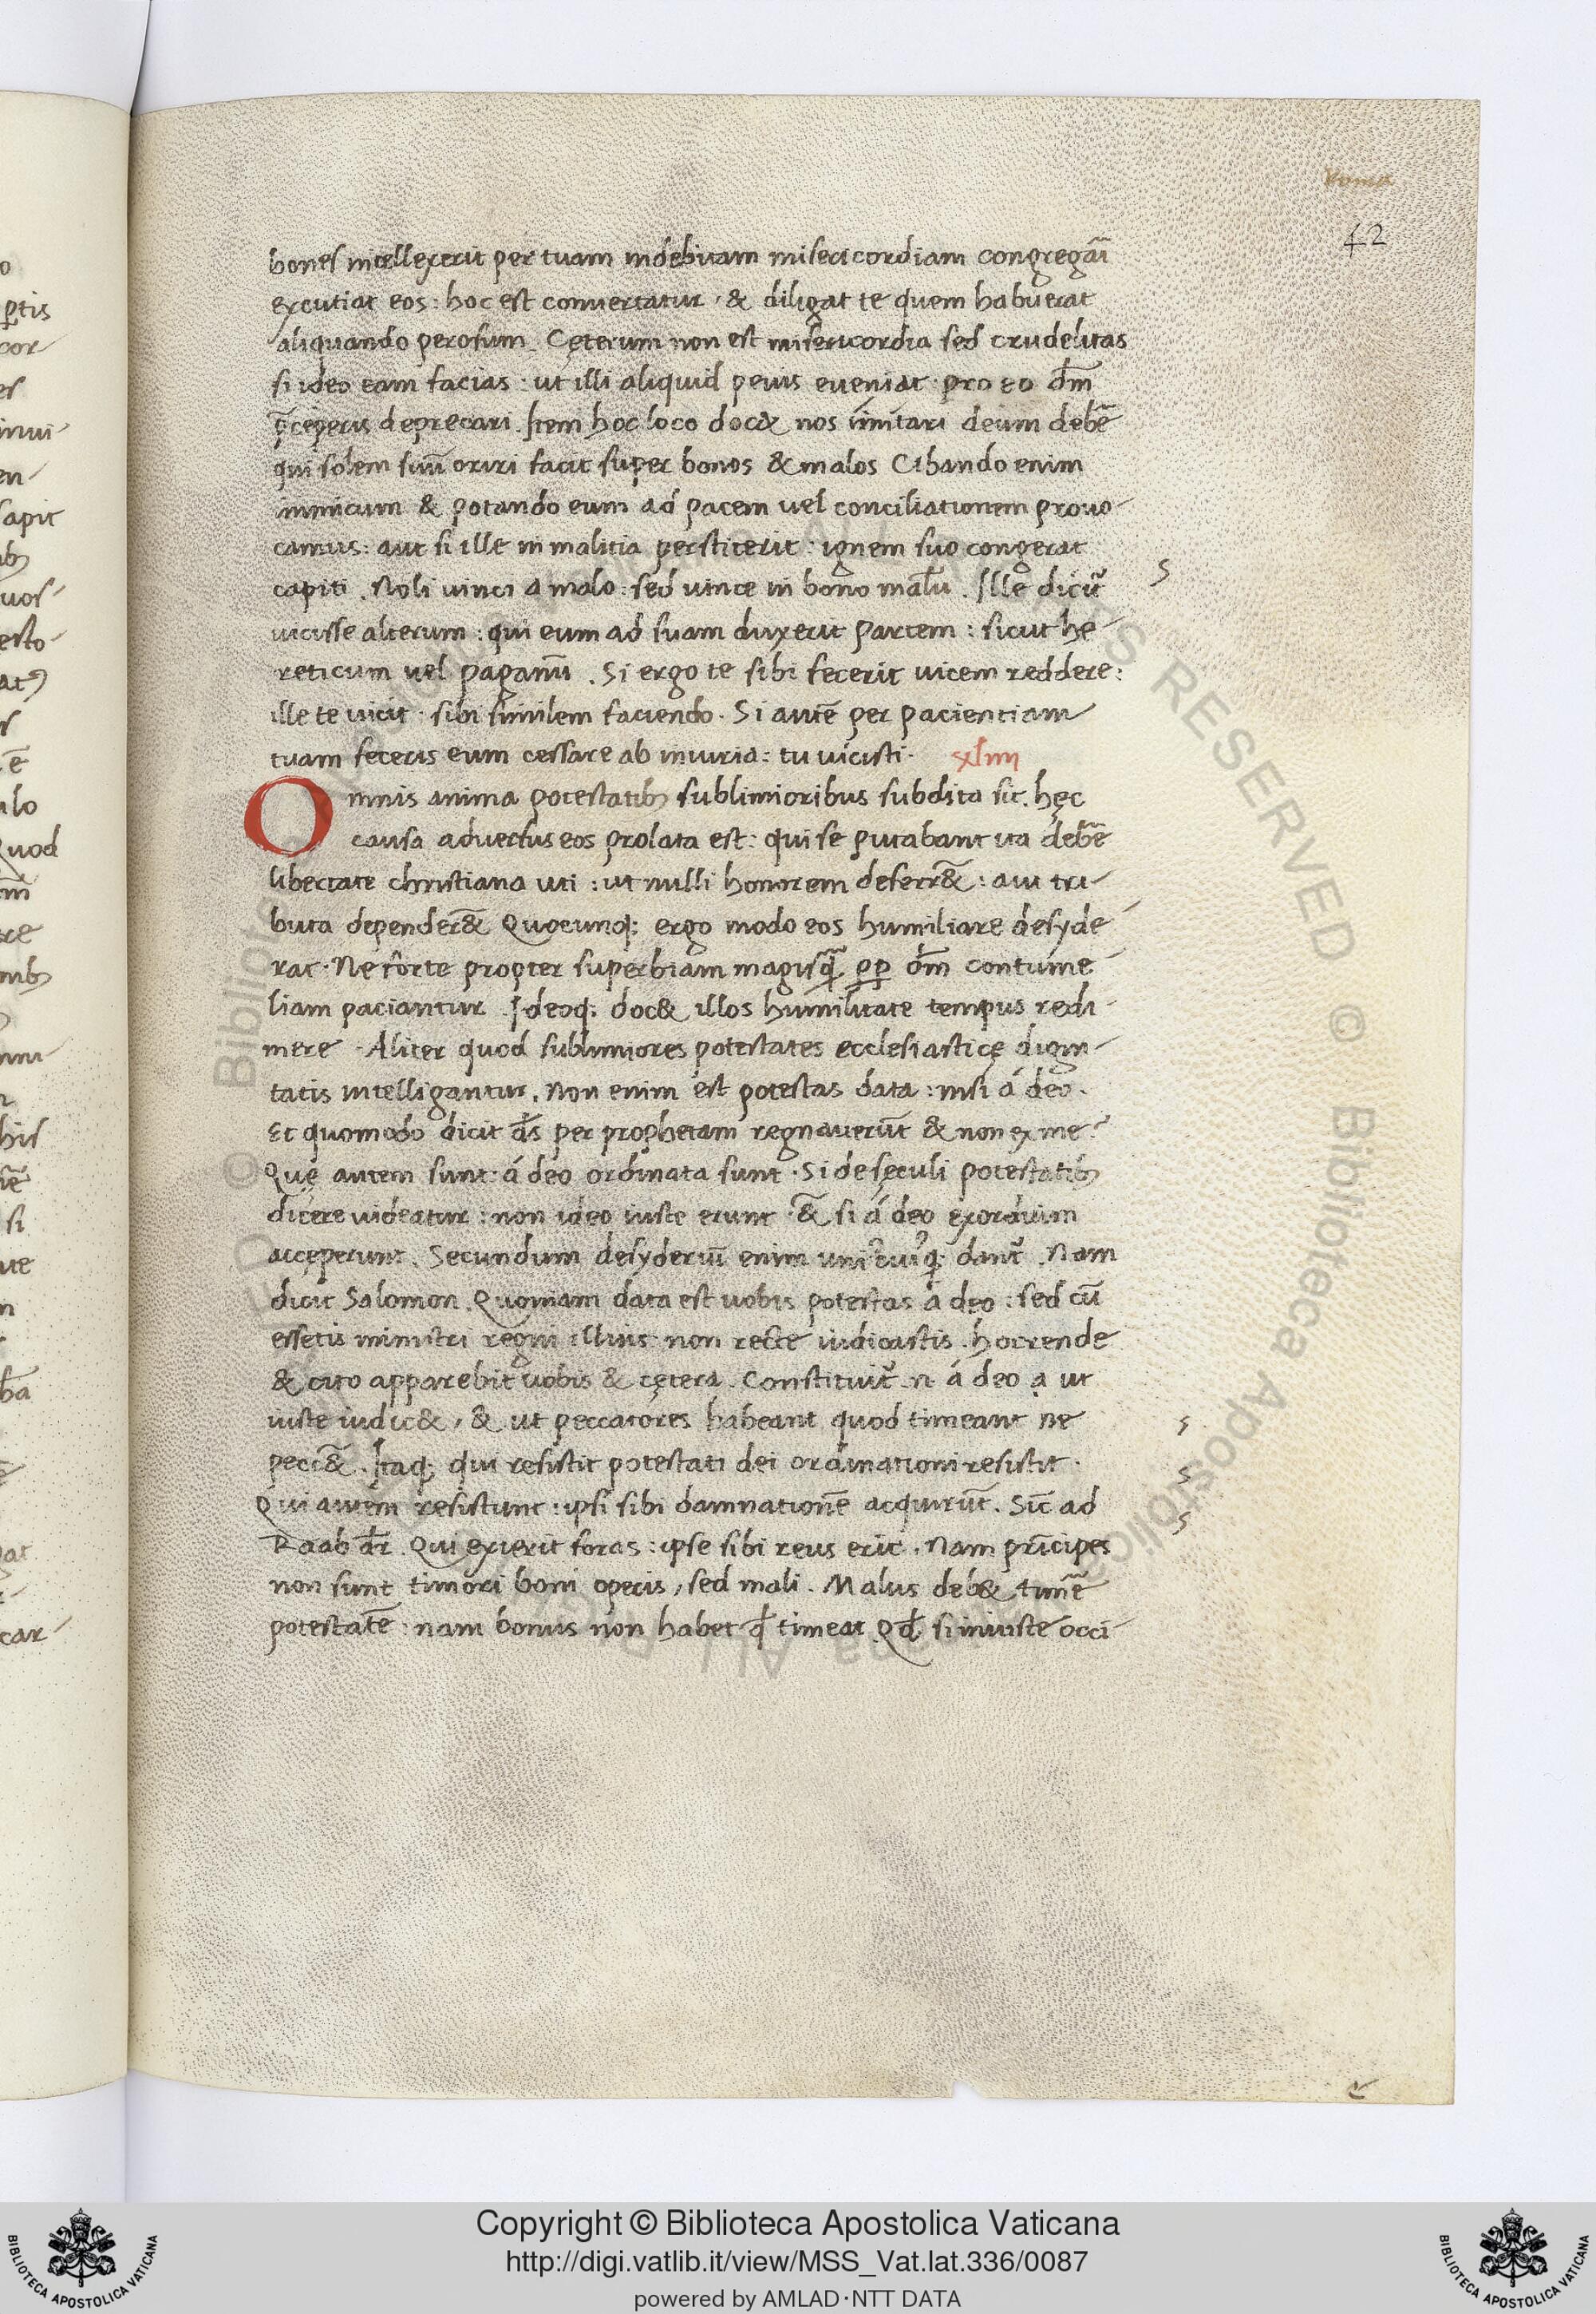 Roma
42
bones intellexerit per tuam indebitam misericordiam congregari
excutiat eos: hoc est conuertatur, & diligat te quem habuerat
aliquando perosum. Cęterum non est misericordia sed crudelitas
si ideo eam facias: ut illi aliquid peius eueniat pro eo dm̄
p̄ceperis deprecari. Item hoc loco doc& nos imitari deum debē
qui solem suū oriri facit super bonos & malos Cibando enim
inimicum & potando eum ad pacem uel conciliationem prouo-
camus: aut si ille in malitia perstiterit: ignem suo congerat
capiti. Noli uinci a malo: sed uince in bono malū. Ille dicit̄
uicisse alterum: qui eum ad suam duxerit partem: sicut he-
reticum uel paganū. Si ergo te sibi fecerit uicem reddere:
ille te uicit sibi similem faciendo. Si autē per pacientiam
tuam feceris eum cessare ab iniuria: tu uicisti. xliiii
Omnis anima potestatib; sublimioribus subdita sit. hęc
causa aduersus eos prolata est: qui se putabant ita debē
libertate christiana uti: ut nulli honorem deferr&̄: aut tri-
buta depender&̄ Quocunq; ergo modo eos humiliare desyde-
rat. Ne forte propter superbiam magisq̄ pp dm̄ contume-
liam paciantur. Ideoq; doc& illos humilitate tempus redi-
mere. Aliter quod sublimiores potestates ecclesiasticę digni-
tatis intelligantur. Non enim est potestas data: nisi á deo.
Et quomodo dicit ds̄ per prophetam regnauerūt & non ex me?
Quę autem sunt á deo ordinata sunt. Si de sęculi potestatib;
dicere uideatur: non ideo iuste erunt &̄ si á deo exordium
acceperunt. Secundum desyderiū enim uni cuiq; dant̄. Nam
dicit Salomon. Quoniam data est uobis potestas á deo: sed cū
essetis ministri regni illius non recte iudicastis. horrende
& cito apparebit uobis & cętera. Constituit̄ n á deo a ut
iuste iudic&, & ut peccatores habeant quod timeant ne
pecc&̄. Itaq; qui resistit potestati dei ordinationi resistit.
Qui autem resistunt: ipsi sibi damnationē acquirūt. Sic̄ ad
Raab dr̄. Qui exierit foras: ipse sibi reus erit. Nam prīcipes
non sunt timori boni operis, sed mali. Malus deb& timē
potestatē: nam bonus non habet qd̄ timeat Qd̄ si iniuste occi-
Copyright © Biblioteca Apostolica Vaticana
http://digi.vatlib.it/view/MSS_Vat.lat.336/0087
powered by AMLAD·NTT DATA